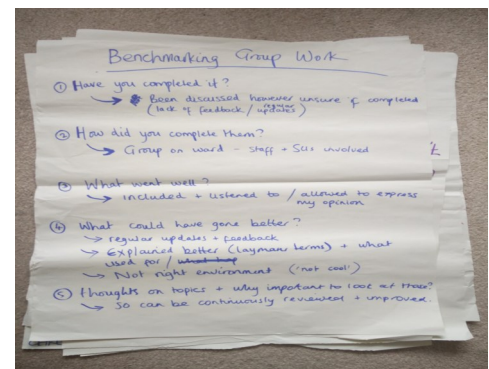 Benchmarking Group Work
① Have you completed it?
↳ Been discussed however unsure if completed
(lack of feedback / regular updates)
② How did you complete them?
↳ Group on ward - staff + SUs involved
③ What went well?
↳ included + listened to / allowed to express
my opinion
④ What could have gone better?
→ regular updates + feedback
→ Explained better (layman terms) + what
used for /
→ Not right environment ('not cool')
⑤ Thoughts on topics + why important to look at those?
↳ So can be continuously reviewed + improved.